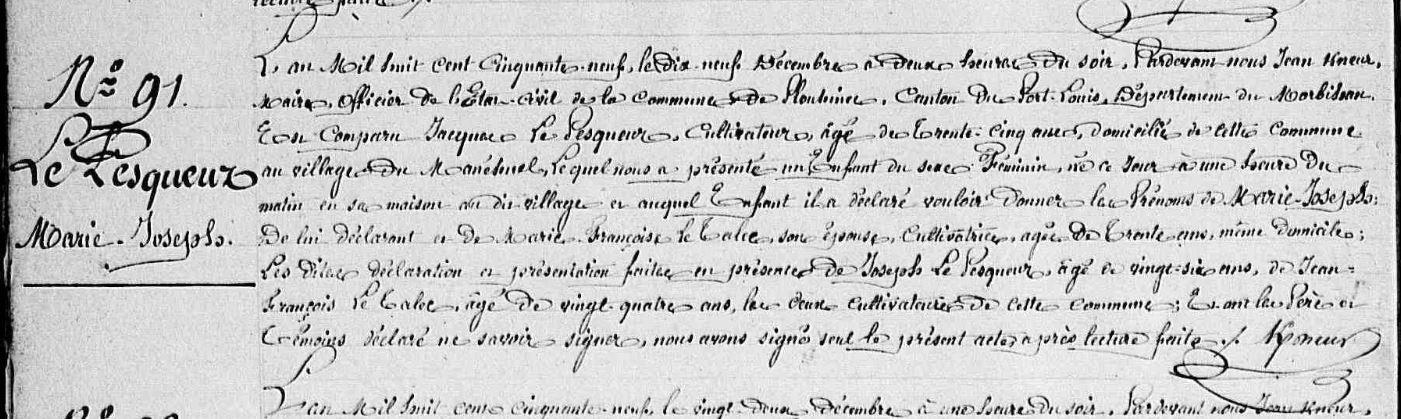 N.º 91.
Le Pesqueur
Marie-Joseph.
L'an Mil huit cent cinquante-neuf, le dix-neuf Décembre à deux heures du soir, Pardevant nous Jean Kneur,
Maire, Officier de l'Etat-civil de la commune de Plouhinec, Canton du Port-Louis, Département du Morbihan.
Est Comparu Jacques Le Pesqueur, Cultivateur, âgé de Trente-cinq ans, domicilié de cette commune
au village du Manéhuel, Lequel nous a présenté un Enfant du sexe Féminin, né ce Jour à une heure du
matin en sa maison au dit village et auquel Enfant il a déclaré vouloir donner les Prénoms de Marie-Joseph;
De lui déclarant et de Marie-Françoise le Calec, son épouse, Cultivatrice, agée de Trente ans, même domicile;
Les dites déclaration et présentation faites en présence de Joseph Le Pesqueur, âgé de vingt-six ans, de Jean-
François Le Calec, âgé de vingt-quatre ans, les deux cultivateurs de cette commune; Et ont les Père et
Témoins déclaré ne savoir signer, nous avons signé seul le présent acte après lecture faite ./.
L'an Mil huit cent cinquante-neuf, le vingt-deux décembre à une heure du soir, Pardevant nous Jean Kneur,